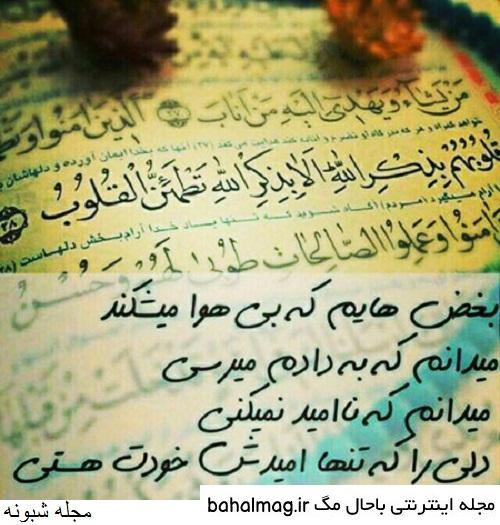 مَن يَشَاءُ وَيَهْدِي إِلَيْهِ مَنْ أَنَابَ ﴿٢٧﴾ الَّذِينَ آمَنُوا وَتَطْ
قُلُوبُهُم بِذِكْرِ اللَّهِ أَلَا بِذِكْرِ اللَّهِ تَطْمَئِنُّ الْقُلُوبُ ﴿٢٨﴾
آمَنُوا وَعَمِلُوا الصَّالِحَاتِ طُوبَىٰ لَهُمْ وَحُسْنُ
بغض هایم که بی هوا میشکند
میدانم که به دادم میرسی
میدانم که ناامید نمیکنی
دلی را که تنها امیدش خودت هستی
مجله اینترنتی باحال مگ bahalmag.ir
مجله شبونه